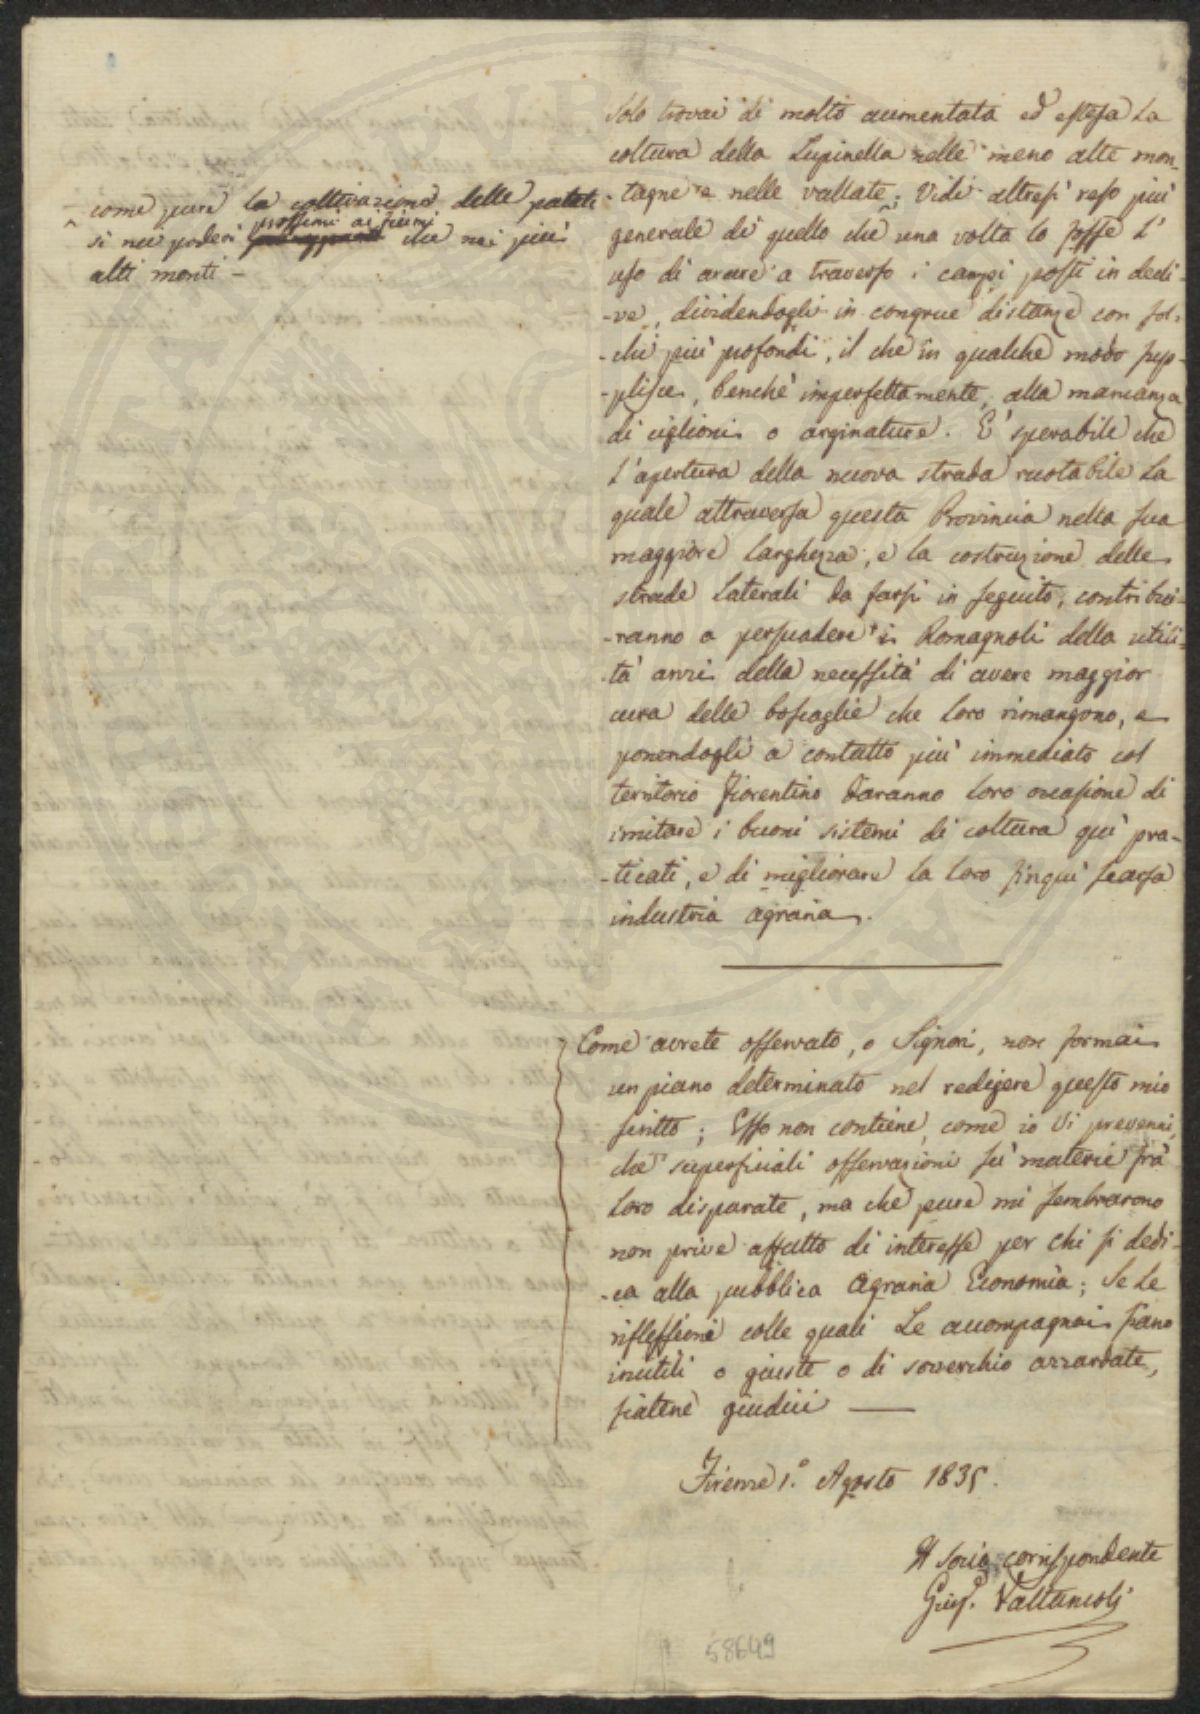 Solo trovai di molto aumentata ed estesa la
coltura della Lupinella nelle meno alte mon-
-tagne e nelle vallate; Vidi altresì reso più
generale di quello che una volta lo fosse l'
uso di arare a traverso i campi posti in decli-
-ve, dividendogli in congrue distanze con sol-
-chi più profondi, il che in qualche modo sup-
-plisce, benchè imperfettamente, alla mancanza
di ciglioni o arginature. E' sperabile che
l'apertura della nuova strada ruotabile la
quale attraversa questa Provincia nella sua
maggiore larghezza, e la costruzione delle
strade laterali da farsi in seguito, contribui-
-ranno a persuadere i Romagnoli della utili-
-tà anzi della necessità di avere maggior
cura delle boscaglie che loro rimangono, e
ponendogli a contatto più immediato col
territorio Fiorentino daranno loro occasione di
imitare i buoni sistemi di coltura quì pra-
-ticati, e di migliorare la loro finquì scarsa
industria agraria.
come pure la coltivazione delle patate
si nei poderi prossimi ai fiumi che nei più
alti monti -
Come avrete osservato, o Signori, non formai
un piano determinato nel redigere questo mio
scritto; Esso non contiene, come io Vi prevenni,
che superficiali osservazioni su materie frà
loro disparate, ma che pure mi sembrarono
non prive affatto di interesse per chi si dedi-
-ca alla pubblica Agraria Economia; Se le
riflessioni colle quali le accompagnai siano
inutili o giuste o di soverchio azzardate,
siatene giudici —
Firenze 1.° Agosto 1835.
Il socio corrispondente
Gius. Valtancoli
58649